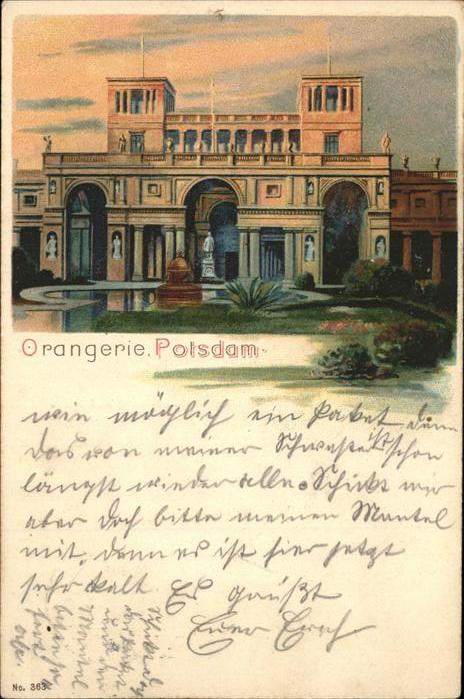 Orangerie. Potsdam.
wie möglich ein Paket denn
das von meiner Schwester ist schon
längst wieder alle. Schickt mir
aber doch bitte meinen Mantel
mit, denn es ist hier jetzt
sehr kalt. Es grüßt
Euer Erich
No. 363